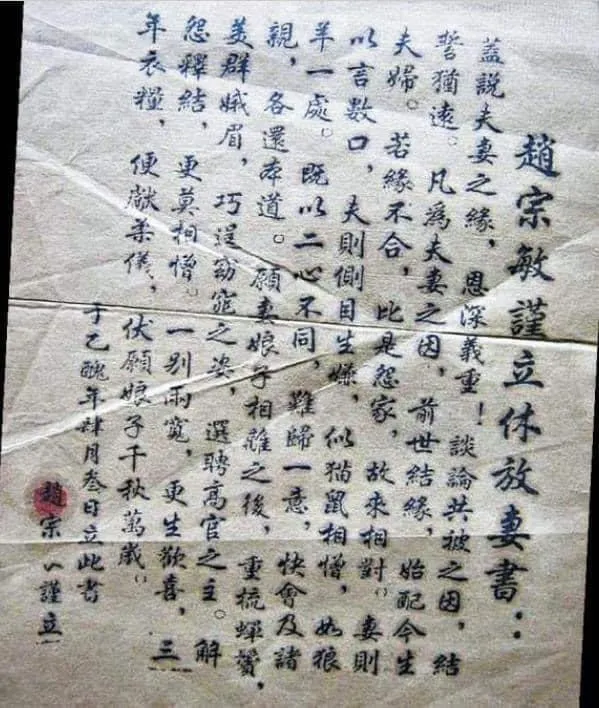 趙宗敏謹立休放妻書：
蓋說夫妻之緣，恩深義重！談論共被之因，結
誓猶遠。凡爲夫妻之因，前世結緣，始配今生
夫婦。若緣不合，比是怨家，故來相對。妻則
以言數口，夫則側目生嫌，似猫鼠相憎，如狼
羊一處。既以二心不同，難歸一意，快會及諸
親，各還本道。願妻娘子相離之後，重梳蟬鬢，
美群娥眉，巧逞窈窕之姿，選聘高官之主。解
怨釋結，更莫相憎。一別兩寬，更生歡喜，三
年衣糧，便献柔儀，伏願娘子千秋萬歲。
于乙醜年肆月叁日立此書
趙宗謹立